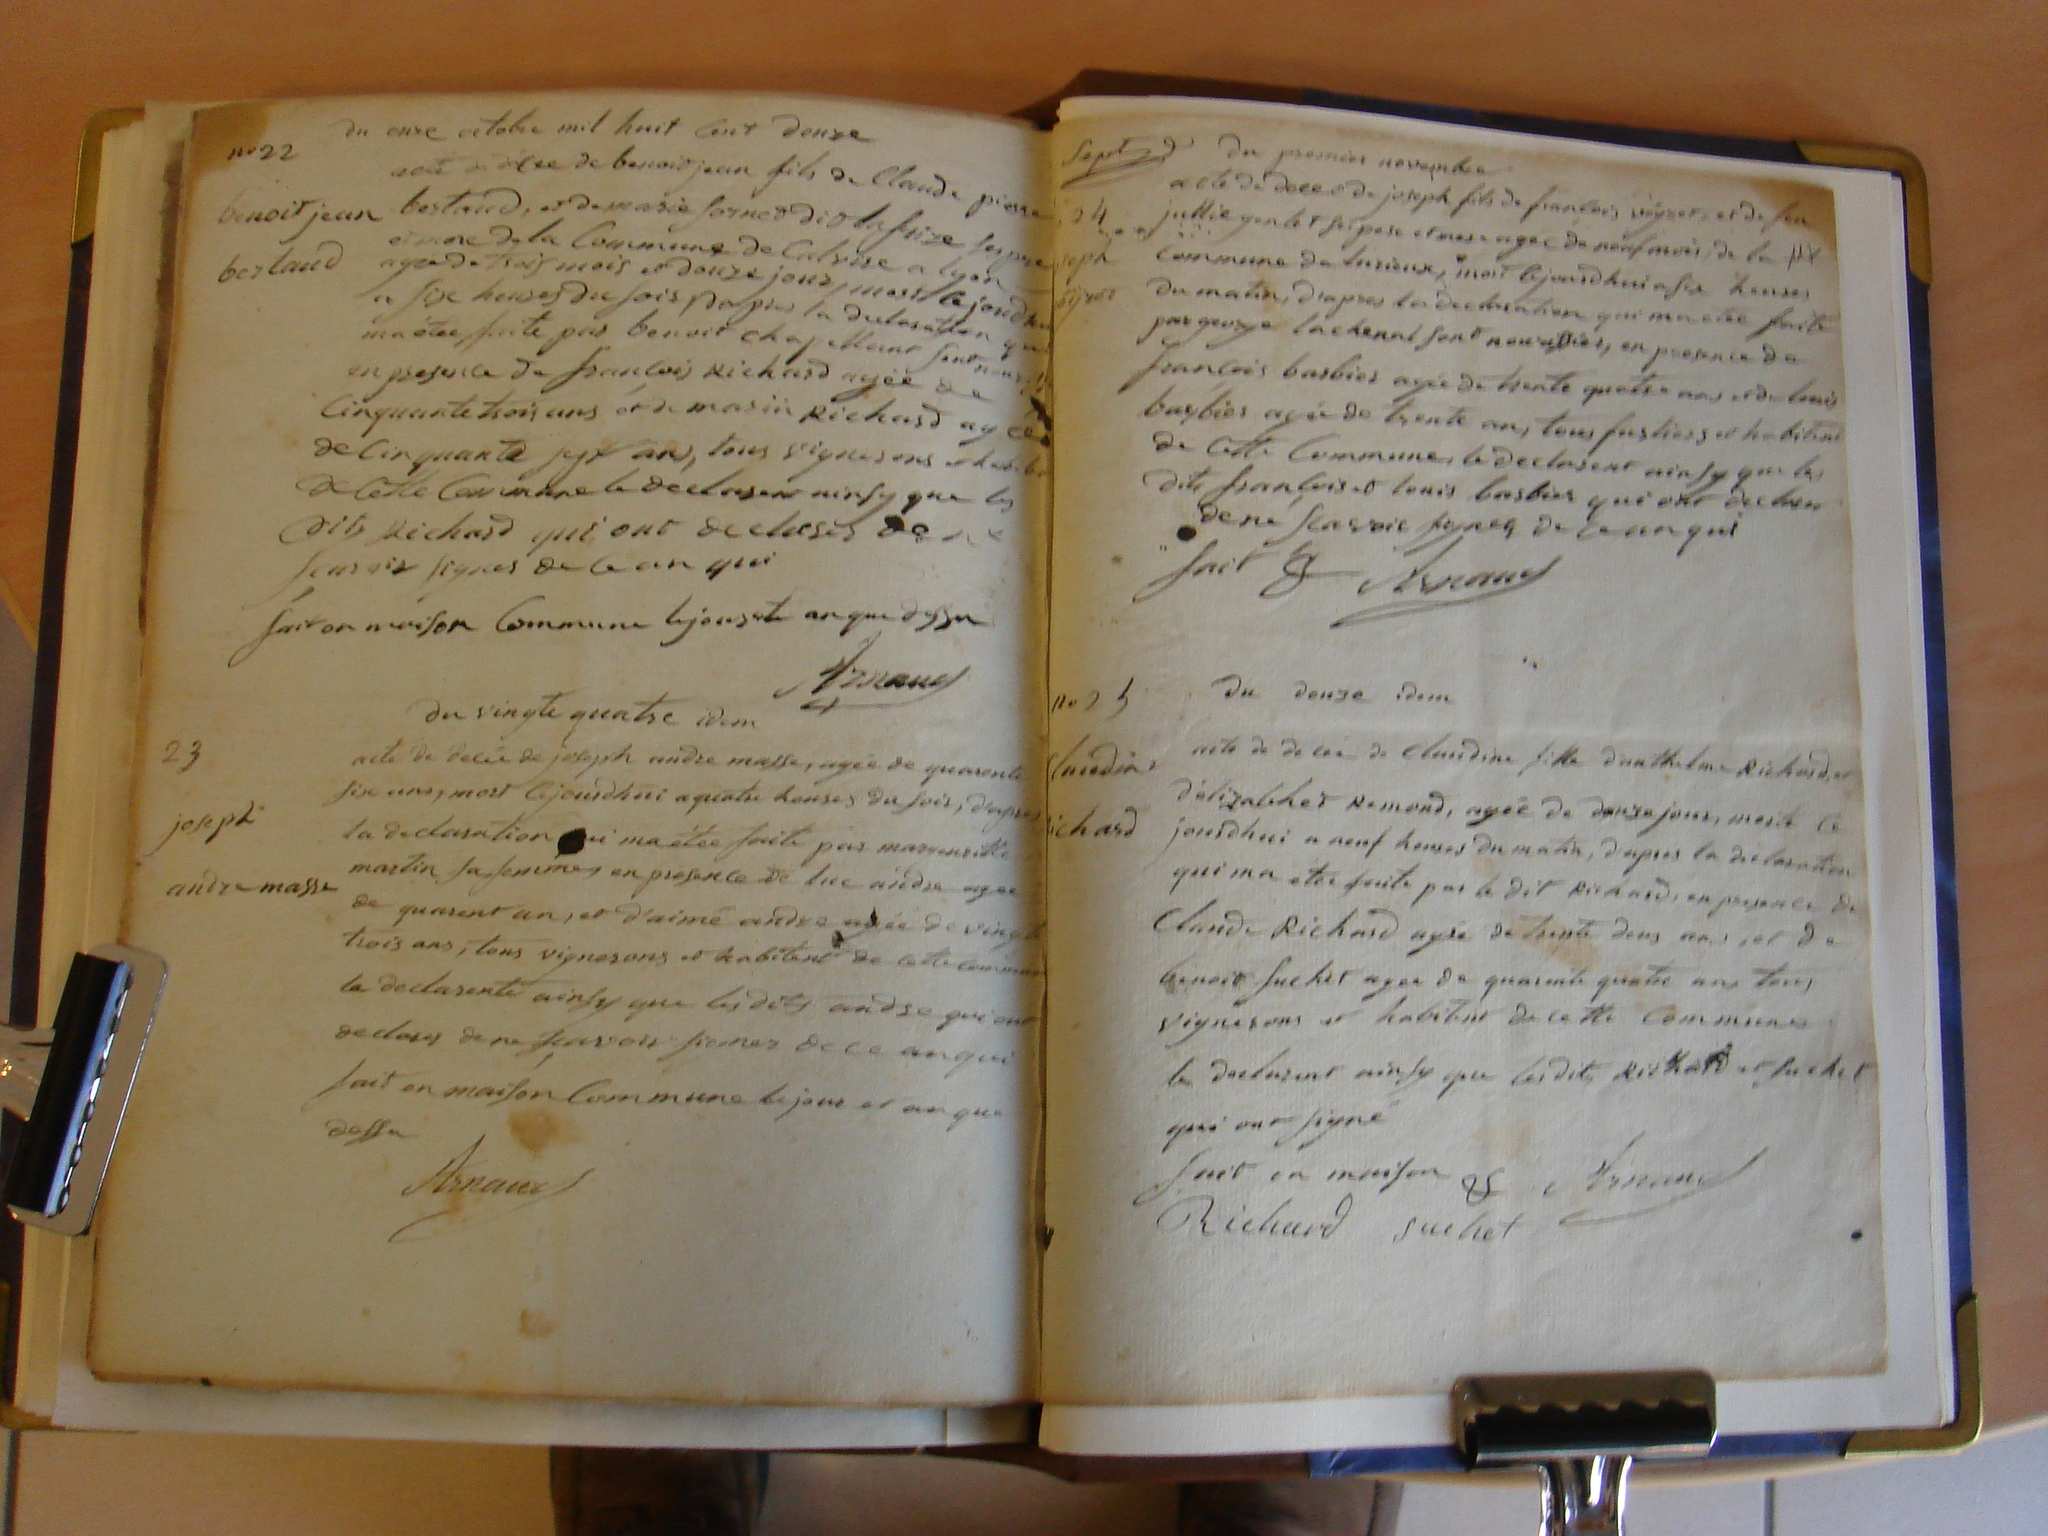 du onze octobre mil huit cent douze
no 22
acte de décee de benoit jean fils de Claude pierre
benoit jean
bertaud
bertaud, et de marie fornet dit la frize ses pere
et mere de la Commune de Caluire a lyon
agée de trois mois et douze jour, mort lejourdhui
a six heures du soir, dapres la declaration qui
ma etée faite par benoit chapellant
en presence de francois Richard agée de
Cinquante trois ans et de marin Richard agée
de Cinquante sept ans, tous vignerons et habitent
de cette Commune le declarent ainsy que les
dits Richard qui ont declarer de ne
scavoir signer de ce an qui
fait en maison Commune le jour et an que dessu
Arnaud
du vingte quatre idem
23
joseph
andre masse
acte de décée de joseph andre masse, agée de quarente
six ans, mort lejourdhui a quatre heures du soir, dapres
la declaration qui ma etée faite par marguerite
martin sa femme, en presence de luc andre agée
de quarent an, et d'aimé andre agée de vingte
trois ans, tous vignerons et habitent de cette commune
le declarente ainsy que les dits andre qui ont
declarer de ne scavoir signer de ce an qui
fait en maison Commune le jour et an que
dessu
Arnaud
Sept
du premier novembre
24
seph
acte de decee de joseph fils de francois et de feu
gentet ses pere et mere agée de neuf mois, de la
Commune de mort lejourdhui a six heures
du matin, d'apres la declaration qui ma etée faite
par george lachenal sont nourissier, en presence de
francois barbier agée de trente quatre ans et de louis
barbier agée de trente an, tous et habitent
de cette Commune, le declarent ainsy que les
dits francois et louis barbier qui ont declarer
de ne scavoir signer de ce an qui
fait & Arnaud
no 25
laudine
ichard
du douze idem
acte de decée de Claudine fille danthelme Richard, et
d'élizabhet Remond, agée de douze jour, morte ce
jourdhui a neuf heures du matin, dapres la declaration
qui ma etée faite par le dit Richard, en presence de
Claude Richard agée de trente deux ans, et de
benoit suchet agée de quarente quatre an, tous
vignerons et habitent de cette Commune
le declarent ainsy que les dits Richard et suchet
qui ont signé
fait en maison & Arnaud
Richard suchet